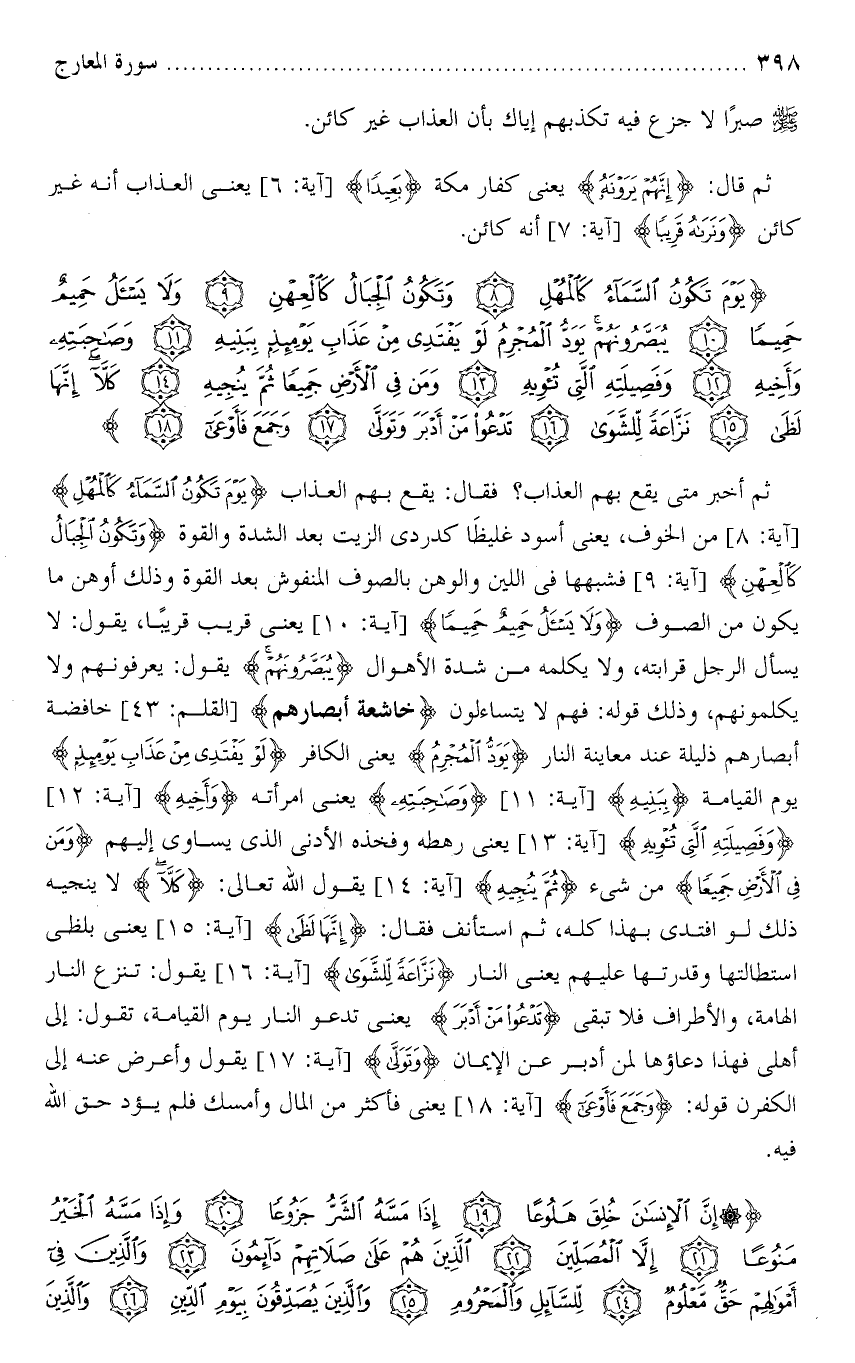 ٣٩٨ ........................................................................ سورة المعارج
ﷺ صبرًا لا جزع فيه تكذبهم إياك بأن العذاب غير كائن.
ثم قال: ﴿إِنَّهُمْ يَرَوْنَهُۥ﴾ يعنى كفار مكة ﴿بَعِيدًا﴾ [آية: ٦] يعنــى العـذاب أنـه غـير
كائن ﴿وَنَرَىٰهُ قَرِيبًا﴾ [آية: ٧] أنه كائن.
﴿يَوْمَ تَكُونُ ٱلسَّمَآءُ كَٱلْمُهْلِ ٨ وَتَكُونُ ٱلْجِبَالُ كَٱلْعِهْنِ ٩ وَلَا يَسْـَٔلُ حَمِيمٌ
حَمِيمًا ١٠ يُبَصَّرُونَهُمْ ۚ يَوَدُّ ٱلْمُجْرِمُ لَوْ يَفْتَدِى مِنْ عَذَابِ يَوْمِئِذٍۭ بِبَنِيهِ ١١ وَصَـٰحِبَتِهِۦ
وَأَخِيهِ ١٢ وَفَصِيلَتِهِ ٱلَّتِى تُـْٔوِيهِ ١٣ وَمَن فِى ٱلْأَرْضِ جَمِيعًا ثُمَّ يُنجِيهِ ١٤ كَلَّآ ۖ إِنَّهَا
لَظَىٰ ١٥ نَزَّاعَةً لِّلشَّوَىٰ ١٦ تَدْعُوا۟ مَنْ أَدْبَرَ وَتَوَلَّىٰ ١٧ وَجَمَعَ فَأَوْعَىٰٓ ١٨ ﴾
ثم أخبر متى يقع بهم العذاب؟ فقـال: يقـع بـهم العـذاب ﴿يَوْمَ تَكُونُ ٱلسَّمَآءُ كَٱلْمُهْلِ﴾
[آية: ٨] من الخوف، يعنى أسود غليظًا كدردى الزيت بعد الشدة والقوة ﴿وَتَكُونُ ٱلْجِبَالُ
كَٱلْعِهْنِ﴾ [آية: ٩] فشبهها فى اللين والوهن بالصوف المنفوش بعد القوة وذلك أوهن ما
يكون من الصـوف ﴿وَلَا يَسْـَٔلُ حَمِيمٌ حَمِيمًا﴾ [آيـة: ١٠] يعنـى قريـب قريبًـا، يقـول: لا
يسأل الرجل قرابته، ولا يكلمه مـن شدة الأهـوال ﴿يُبَصَّرُونَهُمْ ۚ﴾ يقـول: يعرفونـهم ولا
يكلمونهم، وذلك قوله: فهم لا يتساءلون ﴿خاشعة أبصارهم﴾ [القلـم: ٤٣] خافضـة
أبصارهم ذليلة عند معاينة النار ﴿يَوَدُّ ٱلْمُجْرِمُ﴾ يعنى الكافر ﴿لَوْ يَفْتَدِى مِنْ عَذَابِ يَوْمِئِذٍۭ﴾
يوم القيامـة ﴿بِبَنِيهِ﴾ [آيـة: ١١] ﴿وَصَـٰحِبَتِهِۦ﴾ يعنـى امرأتـه ﴿وَأَخِيهِ﴾ [آيـة: ١٢]
﴿وَفَصِيلَتِهِ ٱلَّتِى تُـْٔوِيهِ﴾ [آية: ١٣] يعنى رهطه وفخذه الأدنى الذى يسـاوى إليـهم ﴿وَمَن
فِى ٱلْأَرْضِ جَمِيعًا﴾ من شىء ﴿ثُمَّ يُنجِيهِ﴾ [آية: ١٤] يقـول الله تعـالى: ﴿كَلَّآ ۖ﴾ لا ينجيـه
ذلك لـو افتـدى بـهذا كلـه، ثـم اسـتأنف فقـال: ﴿إِنَّهَا لَظَىٰ﴾ [آيـة: ١٥] يعنـى بلظـى
استطالتها وقدرتـها عليـهم يعنـى النار ﴿نَزَّاعَةً لِّلشَّوَىٰ﴾ [آيـة: ١٦] يقـول: تـنزع النـار
الهامة، والأطراف فلا تبقى ﴿تَدْعُوا۟ مَنْ أَدْبَرَ﴾ يعنـى تدعـو النـار يـوم القيامـة، تقـول: إلى
أهلى فهذا دعاؤها لمن أدبـر عـن الإيمـان ﴿وَتَوَلَّىٰ﴾ [آيـة: ١٧] يقـول وأعـرض عنـه إلى
الكفرن قوله: ﴿وَجَمَعَ فَأَوْعَىٰٓ﴾ [آية: ١٨] يعنى فأكثر من المال وأمسك فلم يـؤد حـق الله
فيه.
﴿۞ إِنَّ ٱلْإِنسَـٰنَ خُلِقَ هَلُوعًا ١٩ إِذَا مَسَّهُ ٱلشَّرُّ جَزُوعًا ٢٠ وَإِذَا مَسَّهُ ٱلْخَيْرُ
مَنُوعًا ٢١ إِلَّا ٱلْمُصَلِّينَ ٢٢ ٱلَّذِينَ هُمْ عَلَىٰ صَلَاتِهِمْ دَآئِمُونَ ٢٣ وَٱلَّذِينَ فِىٓ
أَمْوَٰلِهِمْ حَقٌّ مَّعْلُومٌ ٢٤ لِّلسَّآئِلِ وَٱلْمَحْرُومِ ٢٥ وَٱلَّذِينَ يُصَدِّقُونَ بِيَوْمِ ٱلدِّينِ ٢٦ وَٱلَّذِينَ